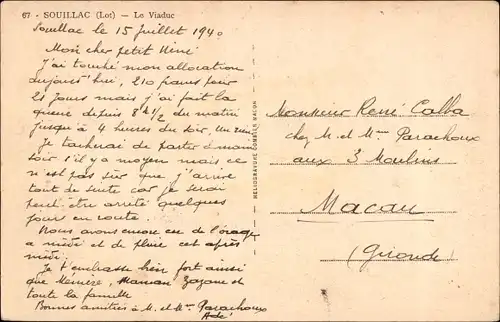 67 - SOUILLAC (Lot) - Le Viaduc
Souillac le 15 Juillet 1940
Mon cher petit Néné
J'ai touché mon allocation
aujourd'hui, 210 francs pour
21 jours mais j'ai fait la
queue depuis 8h 1/2 du matin
jusqu'à 4 heures du soir.
Je tacherai de partir demain
soir s'il y a moyen mais ce
n'est pas sûr que j'arrive
tout de suite car je serai
peut-être arrêté quelques
jours en route.
Nous avons encore eu de l'orage
a midi et de pluie cet après
midi.
Je t'embrasse bien fort ainsi
que Mémère, Maman Zazane et
toute la famille
Bonnes amitiés à M. et Mme Parachoux
Adé
HELIOGRAVURE COMBIER MACON
Monsieur René Calba
chez M. et Mme Parachoux
aux 3 Moulins
Macau
(Gironde)